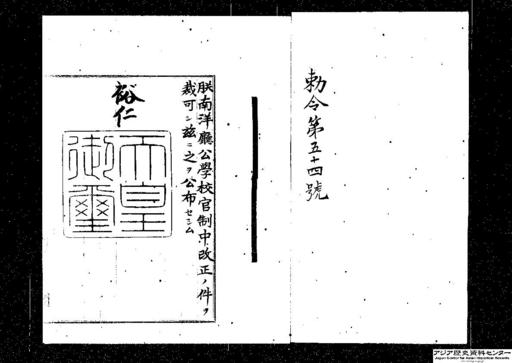 勅令第五十四號
朕南洋廳公學校官制中改正ノ件ヲ
裁可シ茲ニ之ヲ公布セシム
裕仁
天皇
御璽
アジア歴史資料センター
Japan Center for Asian Historical Records